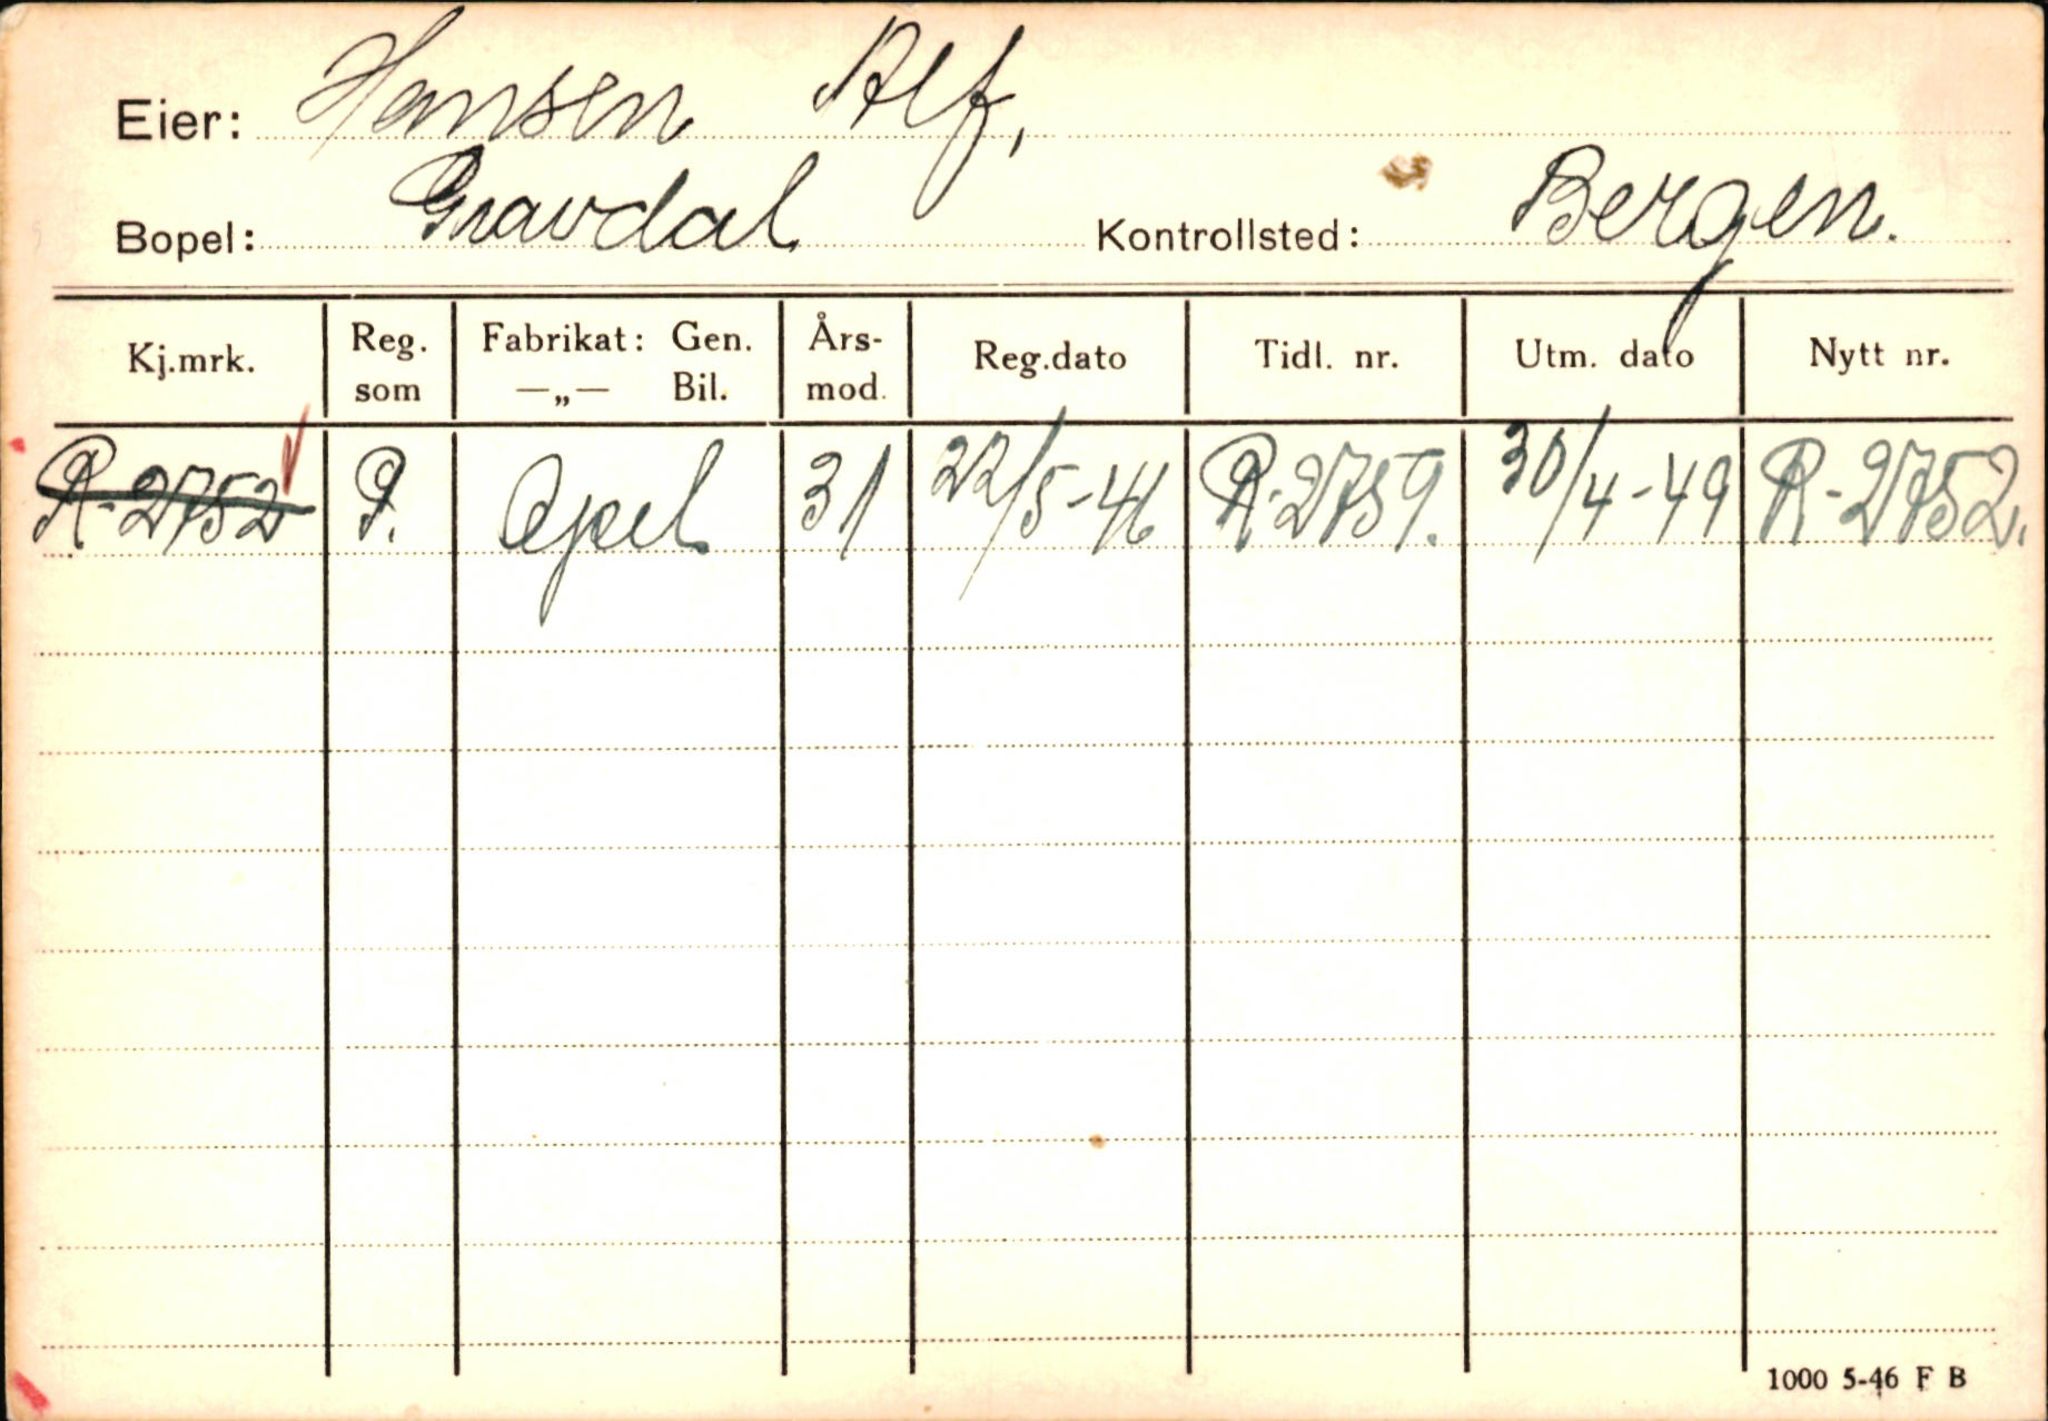 Eier: Hansen Alf,
Bopel: Gravdal Kontrollsted: Bergen.
Kj.mrk. Reg. som Fabrikat: Gen. —„— Bil. Års-mod. Reg.dato Tidl. nr. Utm. dato Nytt nr.
R-2752 P. Opel 31 22/5-46 R-2759. 30/4-49 R-2752.
1000 5-46 F B